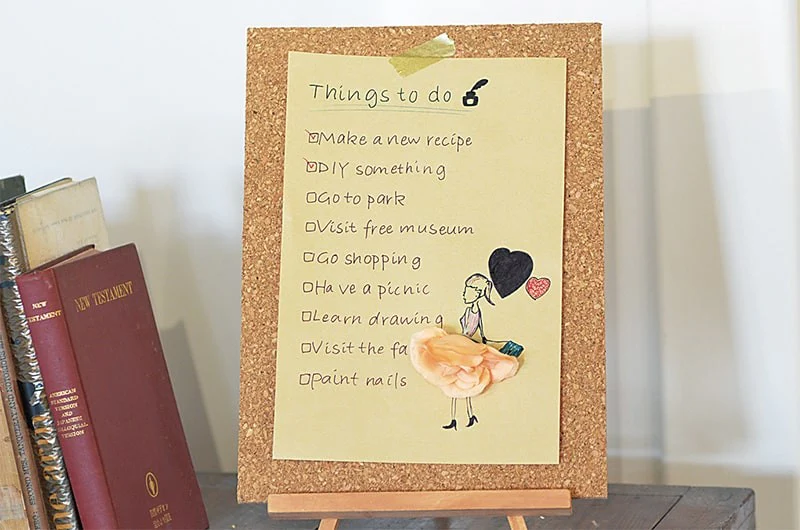 Things to do
Make a new recipe
DIY something
Go to park
Visit free museum
Go shopping
Have a picnic
Learn drawing
Visit the fa
Paint nails
NEW TESTAMENT
NEW
TESTAMENT
AMERICAN
STANDARD
VERSION
AND
JAPANESE
COLLOQUIAL
VERSION